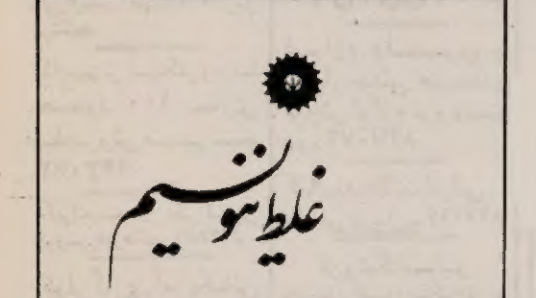 غلط ننویسیم